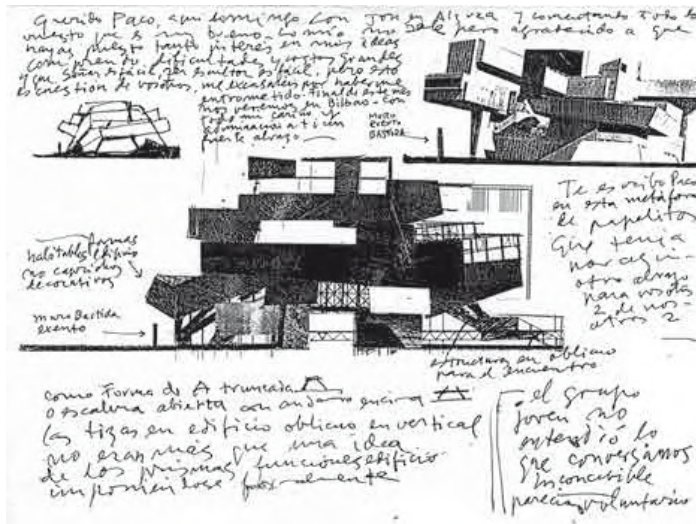 Querido Paco, aquí domingo con Jon en Alguea y comentando todo lo
vuestro que es muy bueno. como no
hayas puesto tanto interés en mis ideas pero agradecido a que
comprendo dificultades y costos grandes
y que soñar es fácil, ser escultor es fácil, pero esto
es cuestión de vosotros, me excusareis por haberme
entrometido. final de este mes
nos veremos en Bilbao. con
todo mi cariño y
admiración a ti un
fuerte abrazo
muro
exento
BASTIDA
Te escribo Paco
en esta metáfora
de papelitos
que tenía
por aquí
otro abrazo
para vosotros
2 de nos-
otros 2
formas
habitables edificio
no caprichos
decorativos
muro Bastida
exento
estructura en oblicuo
para el encuentro
como forma de A truncada
o escalera abierta con andamio encima
las tizas en edificio oblicuo en vertical
no eran más que una idea
de los prismas funciones edificio
imponiéndose formalmente
el grupo
joven no
entendió lo
que conversamos
inconcebible
parecía voluntario